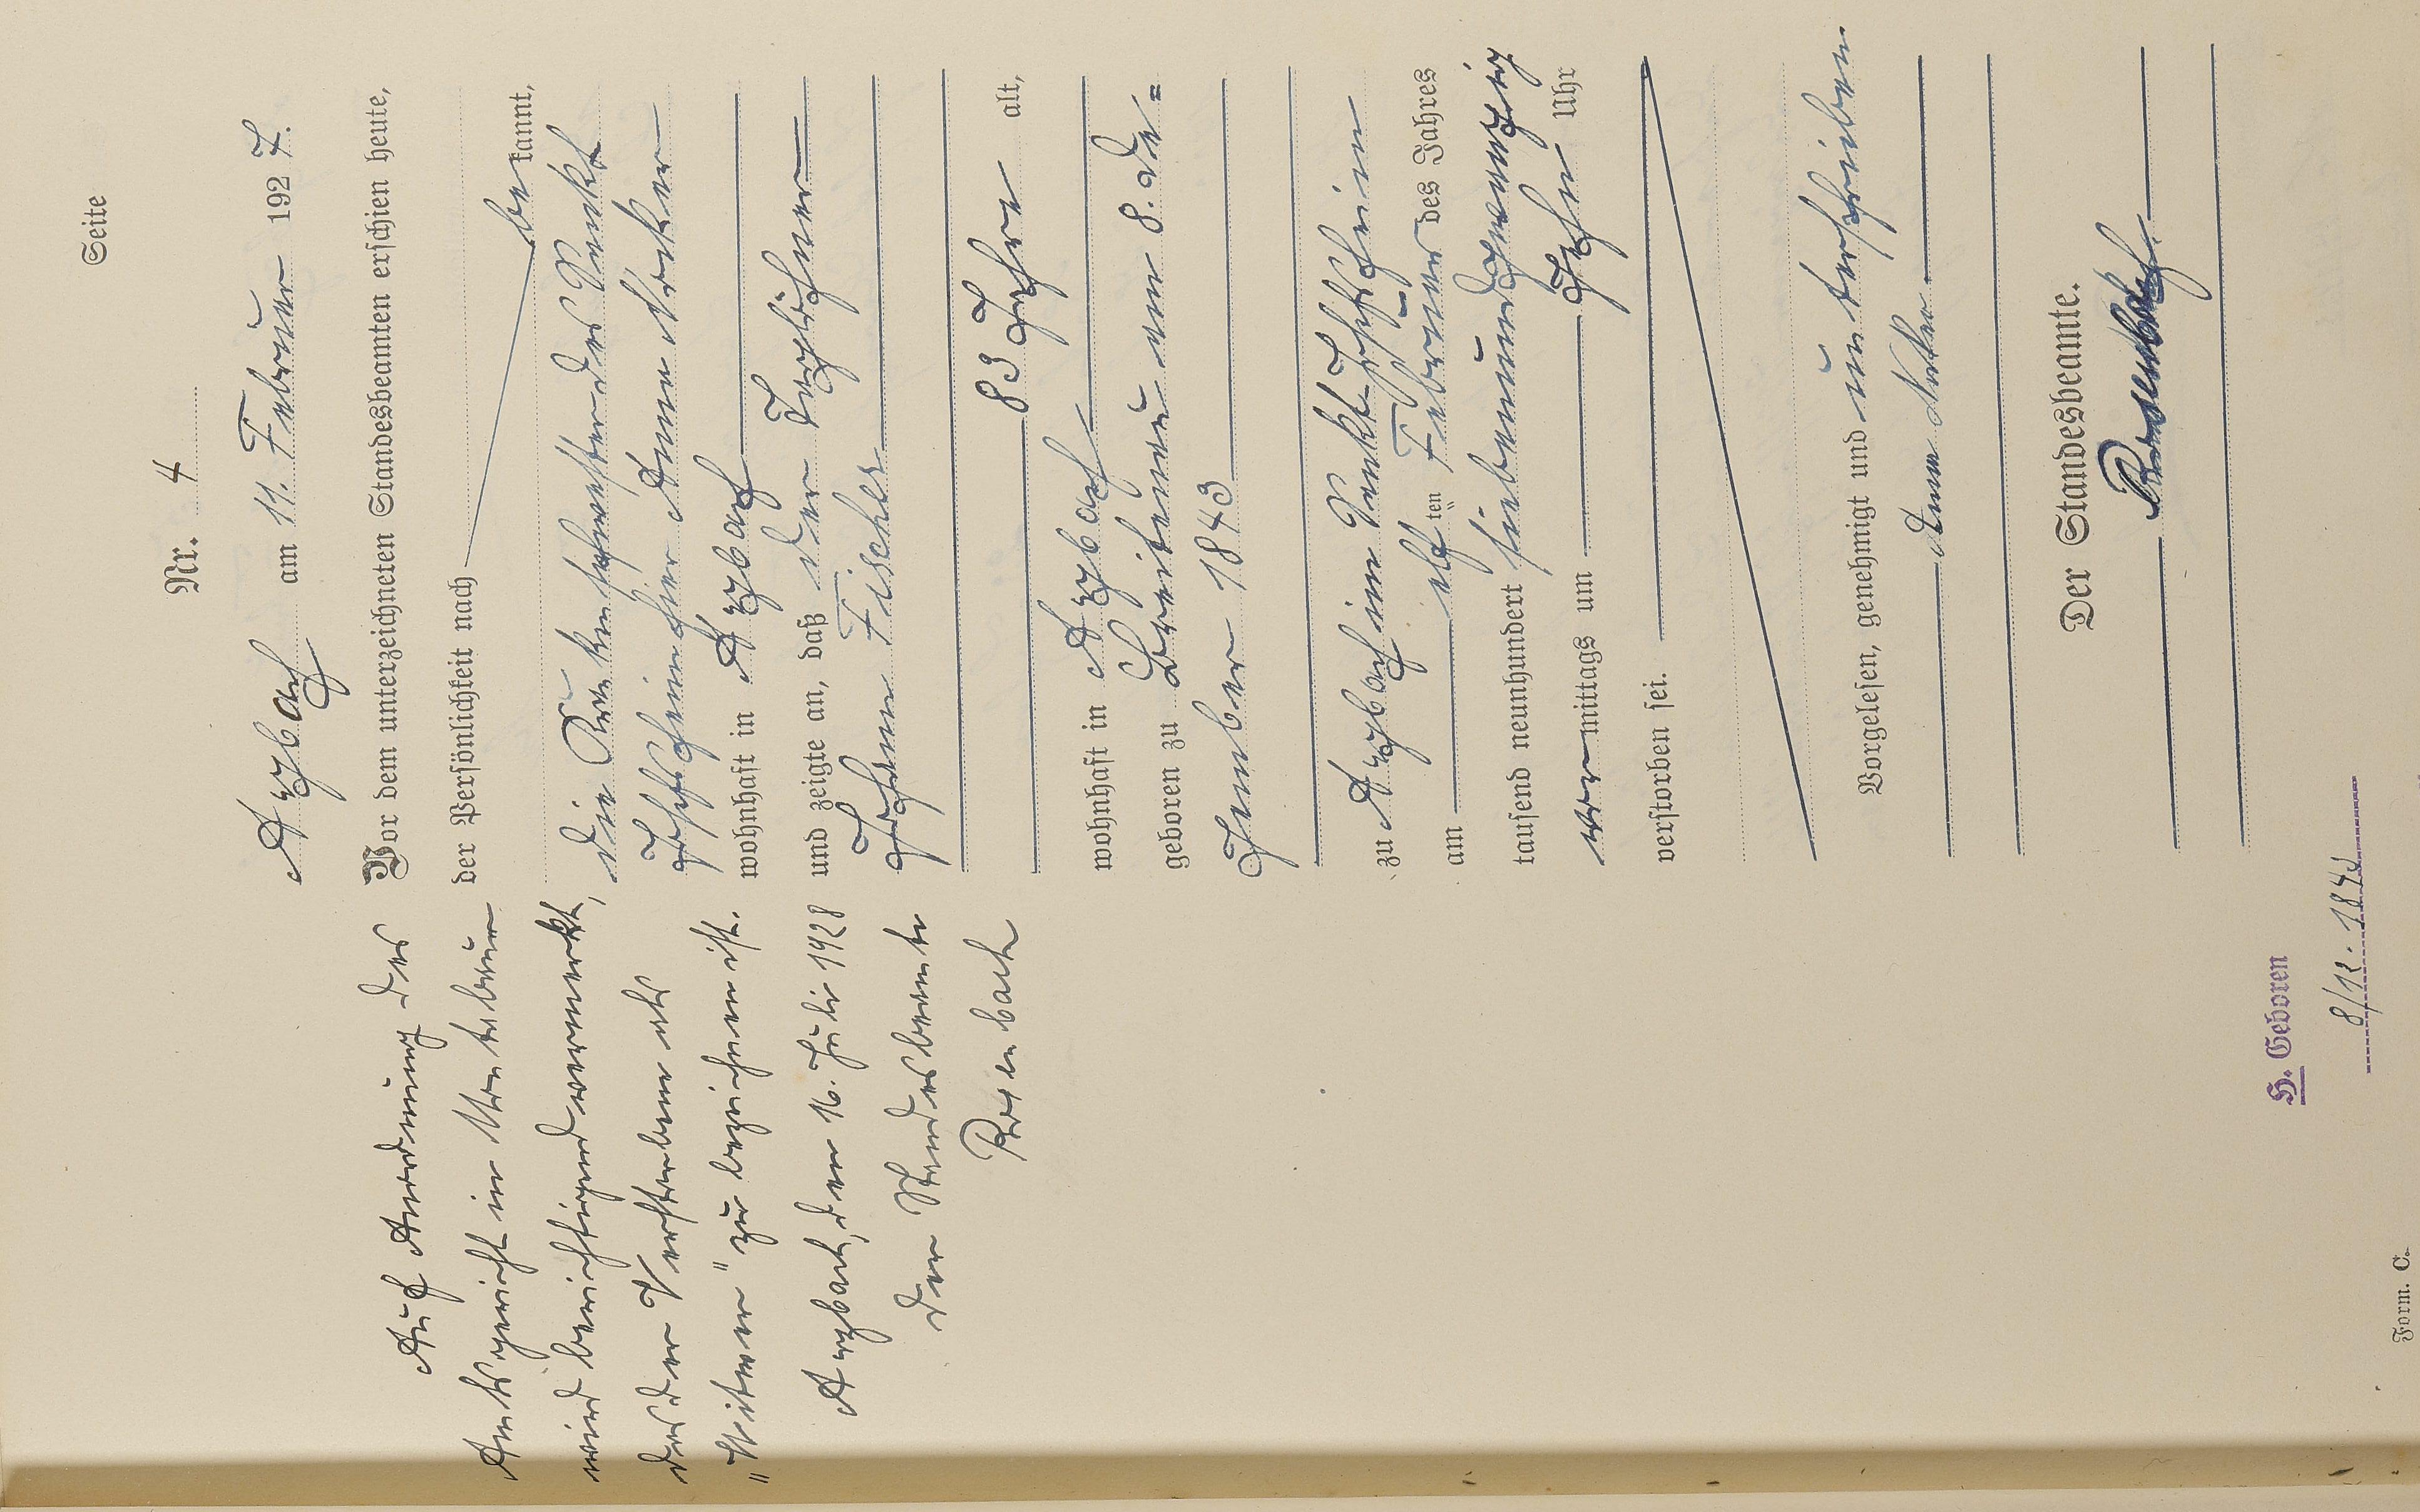 Seite
Nr. 4
Arzbach am 11. Februar 1927.
Vor dem unterzeichneten Standesbeamten erschien heute,
der Persönlichkeit nach be kannt,
die Krankenschwester des Sankt
Josefsheim hier Anna
wohnhaft in Arzbach
und zeigte an, daß der Taglöhner
Johann Fischer
83 Jahre alt,
wohnhaft in Arzbach
geboren zu Breitenau am 8. De=
zember 1843
zu Arzbach im Sankt Josefsheim
am elf ten Februar des Jahres
tausend neunhundert siebenundzwanzig
vor mittags um zehn Uhr
verstorben sei.
Vorgelesen, genehmigt und unterschrieben
Anna
Der Standesbeamte.
Rosenbach.
Auf Anordnung des
Amtsgericht in Montabaur
wird berichtigend vermerkt,
das der Verstorbene als
"Witwer" zu bezeichnen ist.
Arzbach, den 16. Juli 1928
Der Standesbeamte
Rosenbach
H. Geboren
8/12. 1843
Form. C.